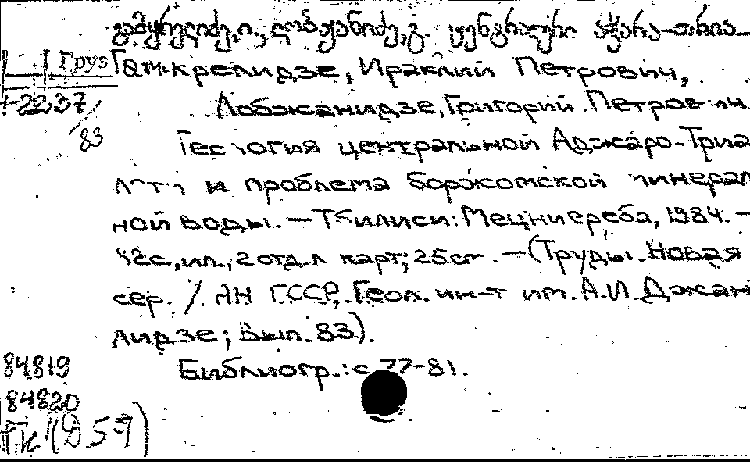 გამყრელიძე, ი., ლობჟანიძე, გ. ცენტრალური აჭარა-თრია-
Груз Гамкрелидзе, Ираклий Петрович,
2237/83 Лобжанидзе, Григорий Петрович.
Геология центральной Аджаро-Триа
и проблема боржомской минерал
ной воды. - Тбилиси: Мецниереба, 1984. -
82с, ил., 2 отд. л карт; 25см. - (Труды. Новая
сер. / АН ГССР, Геол. ин-т им. А.И. Джан
лидзе; Вып. 83).
84819 Библиогр.: с 77-81.
84820
ГК (Д59)